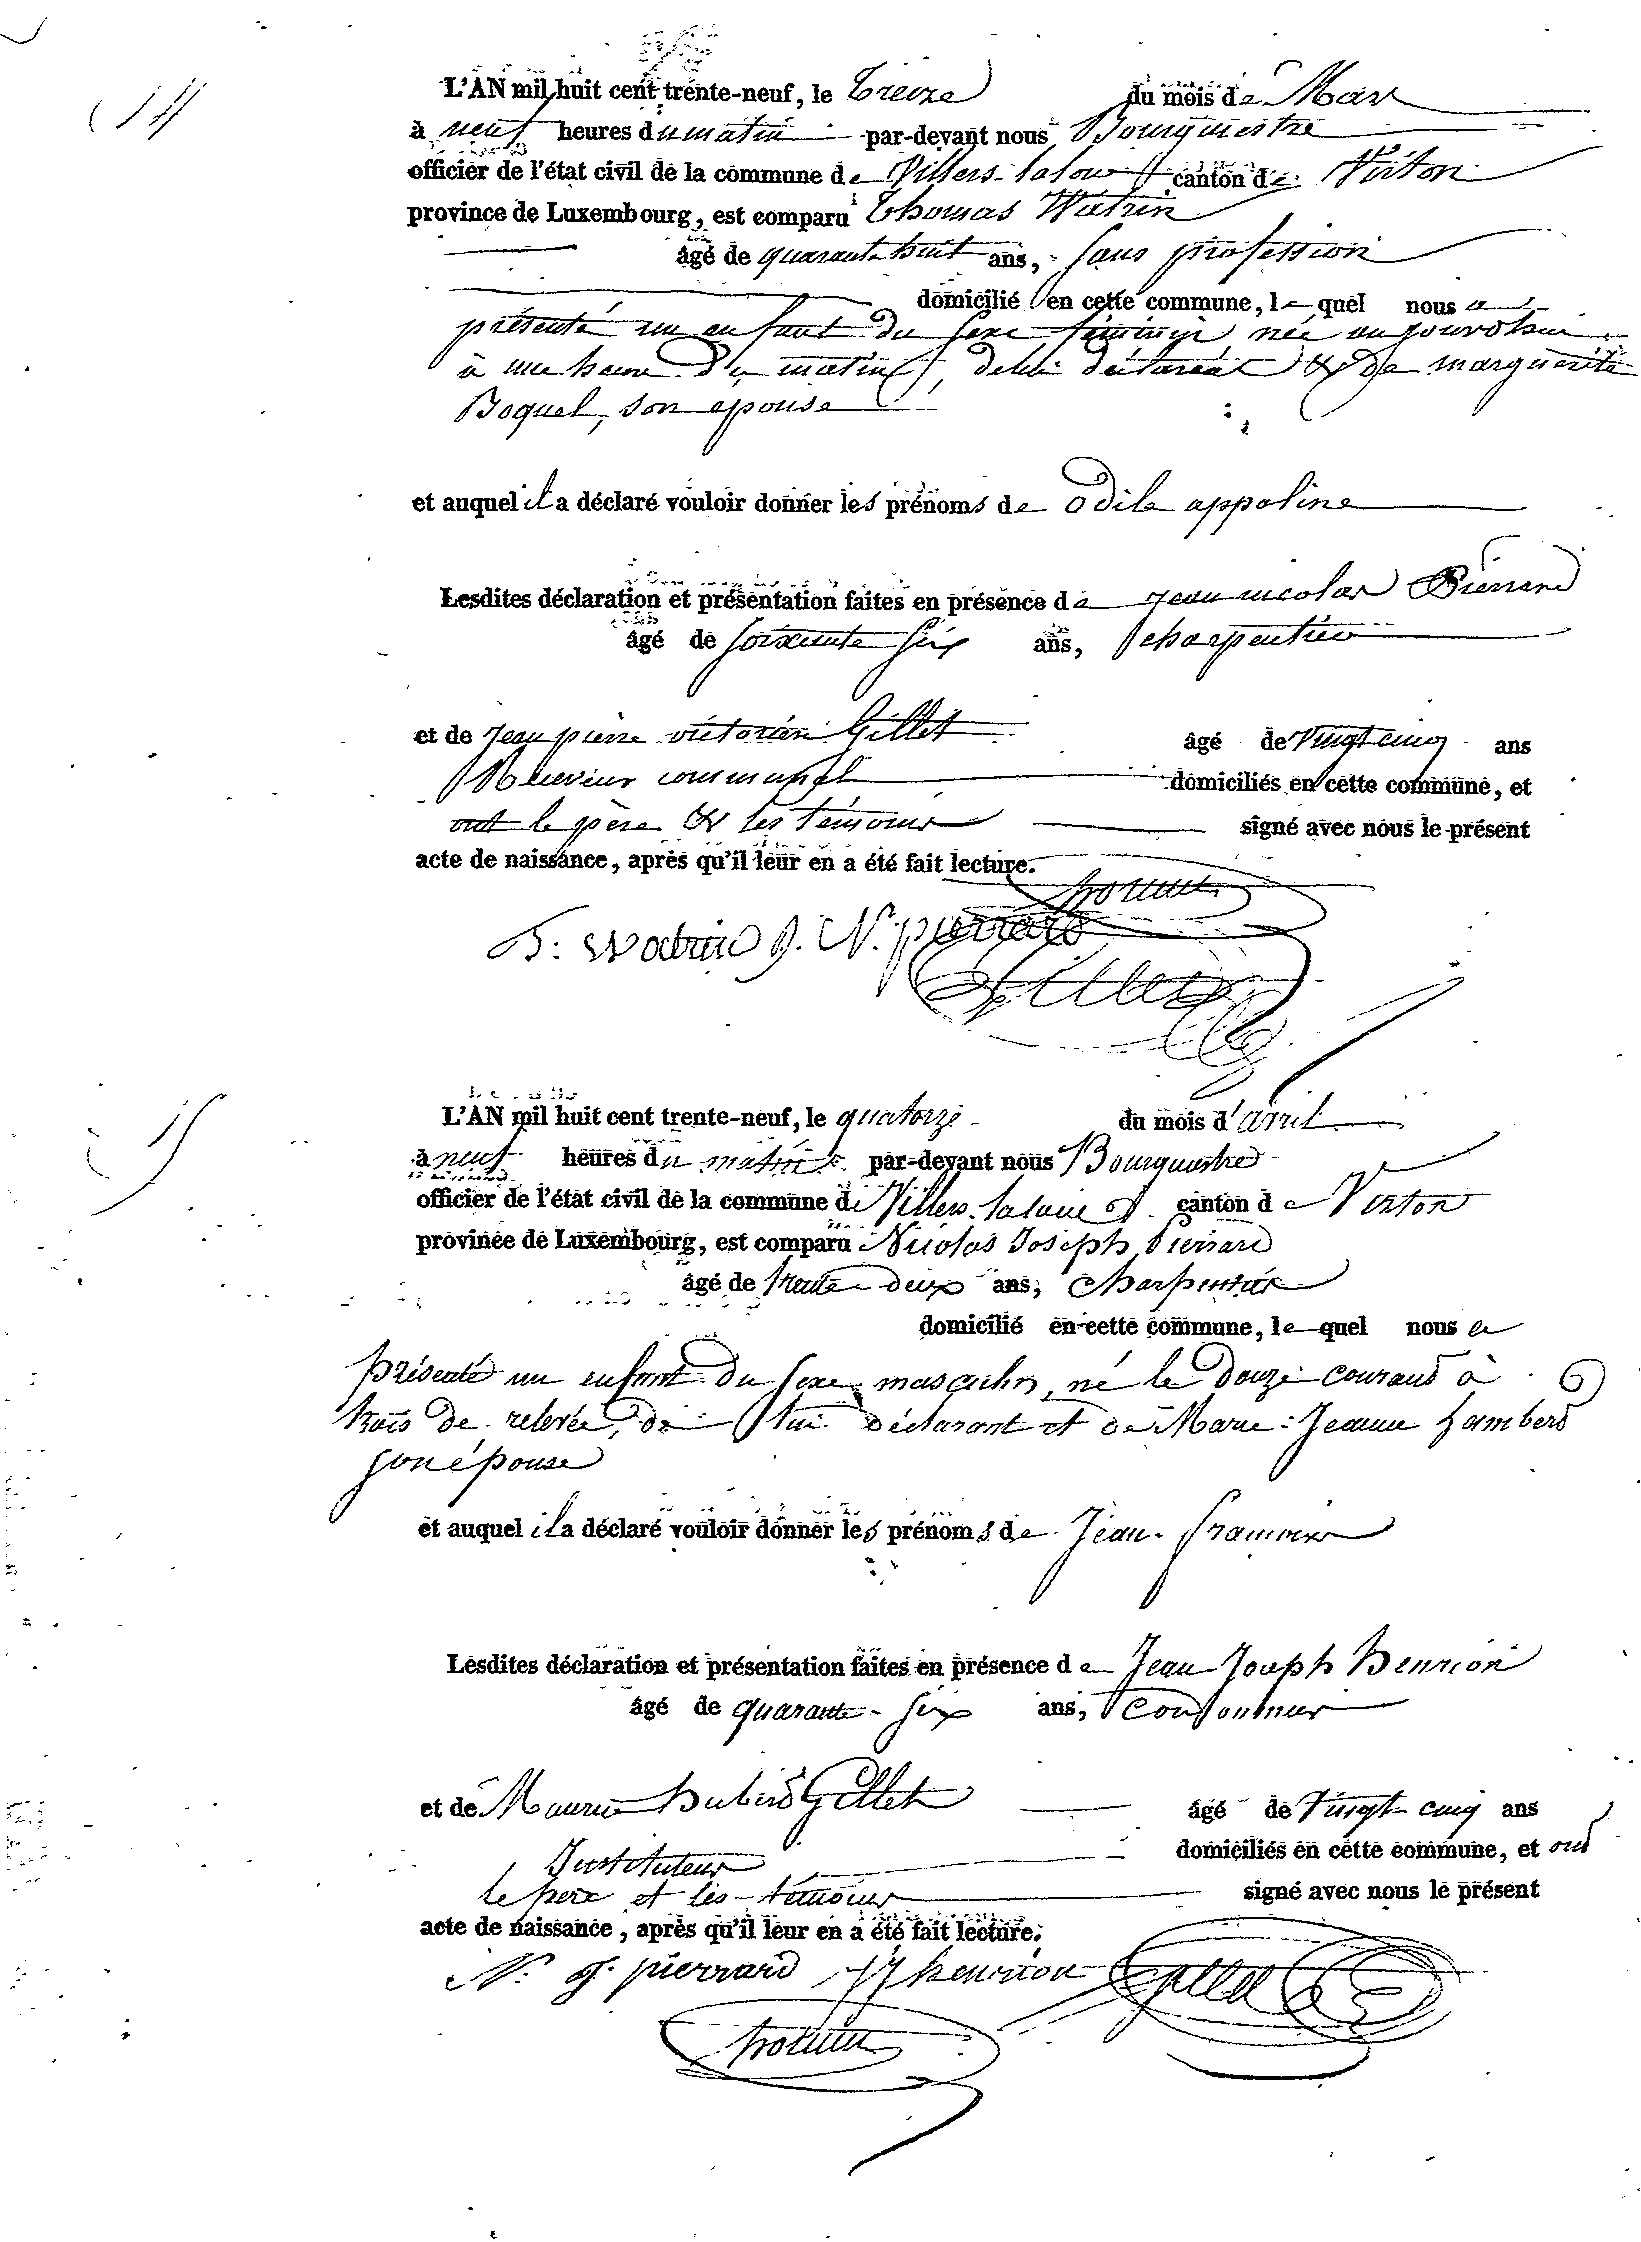 14
L'AN mil huit cent trente-neuf, le Treize du mois de Mars
à neuf heures du matin par-devant nous Bourgmestre
officier de l'état civil de la commune de Villers-laloue canton de Virton
province de Luxembourg, est comparu Thomas Watrin
âgé de quarante huit ans, sans profession
domicilié en cette commune, le quel nous a
présenté un enfant du sexe féminin née aujourdhui
à une heure du matin, delui déclarant & de marguerite
Boquel, son epouse
et auquel il a déclaré vouloir donner les prénoms de odile appoline
Lesdites déclaration et présentation faites en présence de jean nicolas Pierrard
âgé de soixante six ans, charpentier
et de jean pierre victorien Gillet âgé de vingt cinq ans
Receveur communal domiciliés en cette commune, et
ont le père & les témoins signé avec nous le présent
acte de naissance, après qu'il leur en a été fait lecture.
T: Watrin J. N. pierrard
Gillet
15
L'AN mil huit cent trente-neuf, le quatorze du mois d'avril
à neuf heures du matin par-devant nous Bourgmestre
officier de l'état civil de la commune de Villers-laloue canton de Virton
province de Luxembourg, est comparu Nicolas Joseph Pierrard
âgé de trente-deux ans, charpentier
domicilié en cette commune, le quel nous a
présenté un enfant du sexe masculin, né le douze courant à
trois de relevée, de lui déclarant et de Marie-Jeanne Lambert
son épouse
et auquel il a déclaré vouloir donner les prénoms de Jean-francois
Lesdites déclaration et présentation faites en présence de Jean Joseph Henrion
âgé de quarante-six ans, Cordonnier
et de Maurice Hubert Gillet âgé de vingt-cinq ans
Instituteur domiciliés en cette commune, et ont
le père et les témoins signé avec nous le présent
acte de naissance, après qu'il leur en a été fait lecture.
N. J. pierrard JJ henrion Gillet